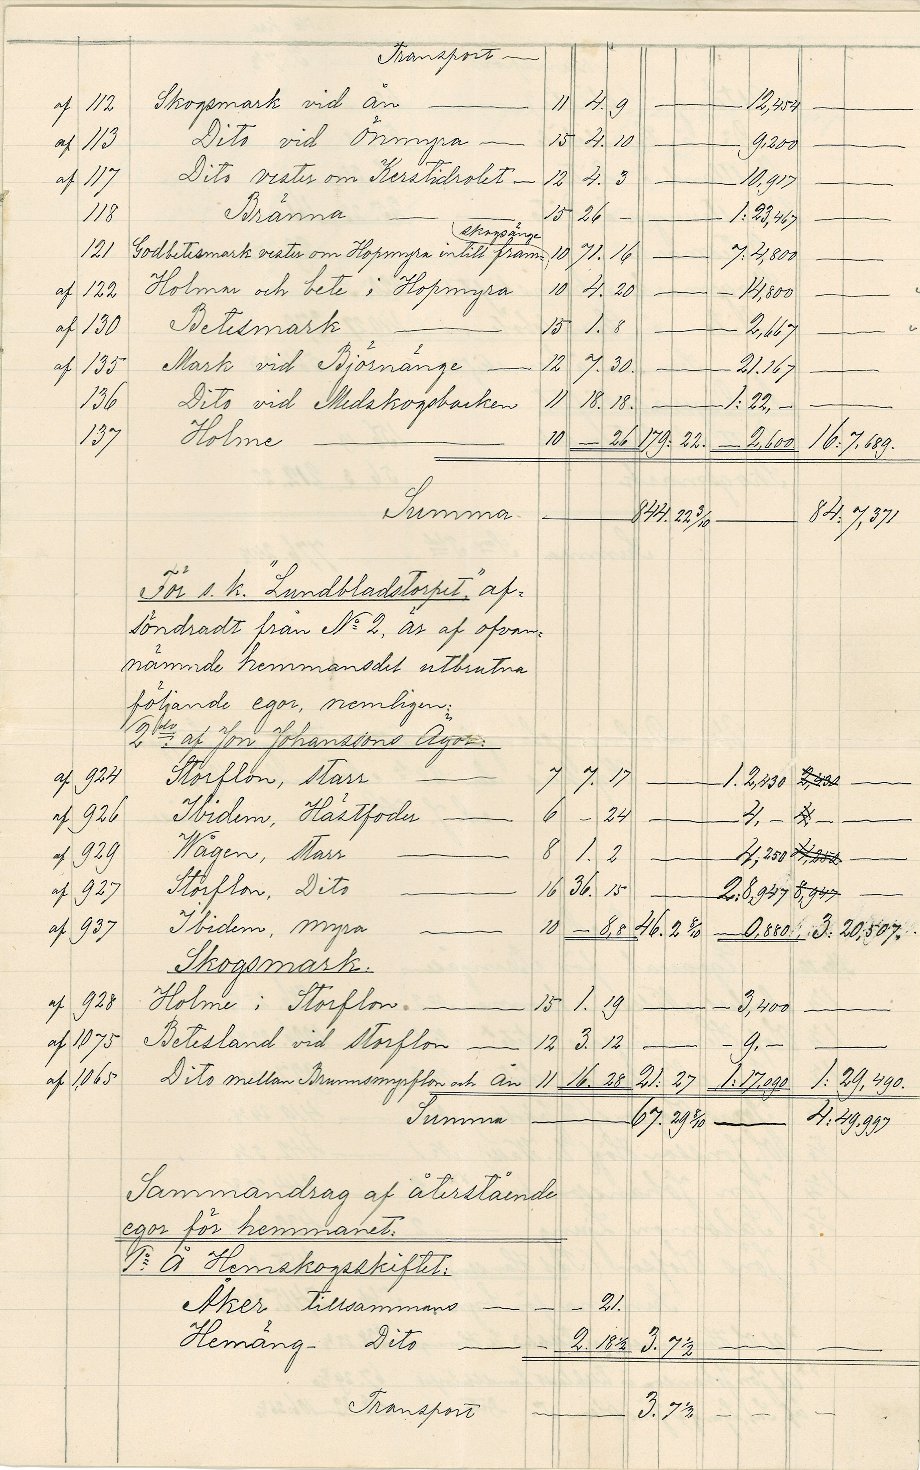 Transport —
af 112 Skogsmark vid ån — 11 4. 9 — 12,454 —
af 113 Dito vid Önmyra — 15 4. 10 — 9,200 —
af 117 Dito vester om — 12 4. 3 — 10,917 —
118 Bränna — — 15 26 - — 1: 23,467 —
skogsänge
121 Godbetesmark vester om Hopmyra intill fram 10 71. 16 — 7: 4,800 —
af 122 Holmar och bete i Hopmyra 10 4. 20 — 14,800 —
af 130 Betesmark — 15 1. 8 — 2,667 —
af 135 Mark vid Björnänge — 12 7. 30. — 21.167 —
136 Dito vid Medskogsbacken 11 18. 18. — 1: 22, - —
137 Holme — 10 - 26 179: 22. — 2,600 16: 7,689.
Summa — 844. 22 3/10 — 84: 7,371
För s. k. "Lundbladstorpet," af=
söndradt från No 2, är af ofvan=
nämnde hemmansdel utbrutna
följande egor, nemligen:
2do: af Jon Johanssons Ägor:
af 924 Storflon, starr — 7 7. 17 — 1. 2,430 2,430 —
af 926 Ibidem, Hästfoder — 6 - 24 — 4, - 4 - —
af 929 Wågen, starr — 8 1. 2 — 4,250 4,252 —
af 927 Storflon, Dito — 16 36. 15 — 2: 8,947 8,947 —
af 937 Ibidem, myra — 10 - 8,8 46. 2 8/10 — 0,880 3: 20,507.
Skogsmark.
af 928 Holme i Storflon. — 15 1. 19 — - 3,400 —
af 1,075 Betesland vid storflon — 12 3. 12 — - 9. - —
af 1,065 Dito mellan Brunnsmyrflon och Ån 11 16. 28 21: 27 1: 17,090 1: 29,490.
Summa — 67. 29 8/10 — 4: 49,997
Sammandrag af återstående
egor för hemmanet:
1o: Å Hemskogsskiftet:
Åker tillsammans — - - 21.
Hemäng - Dito — - 2. 18½ 3. 7½ — —
Transport — 3. 7½ — - -